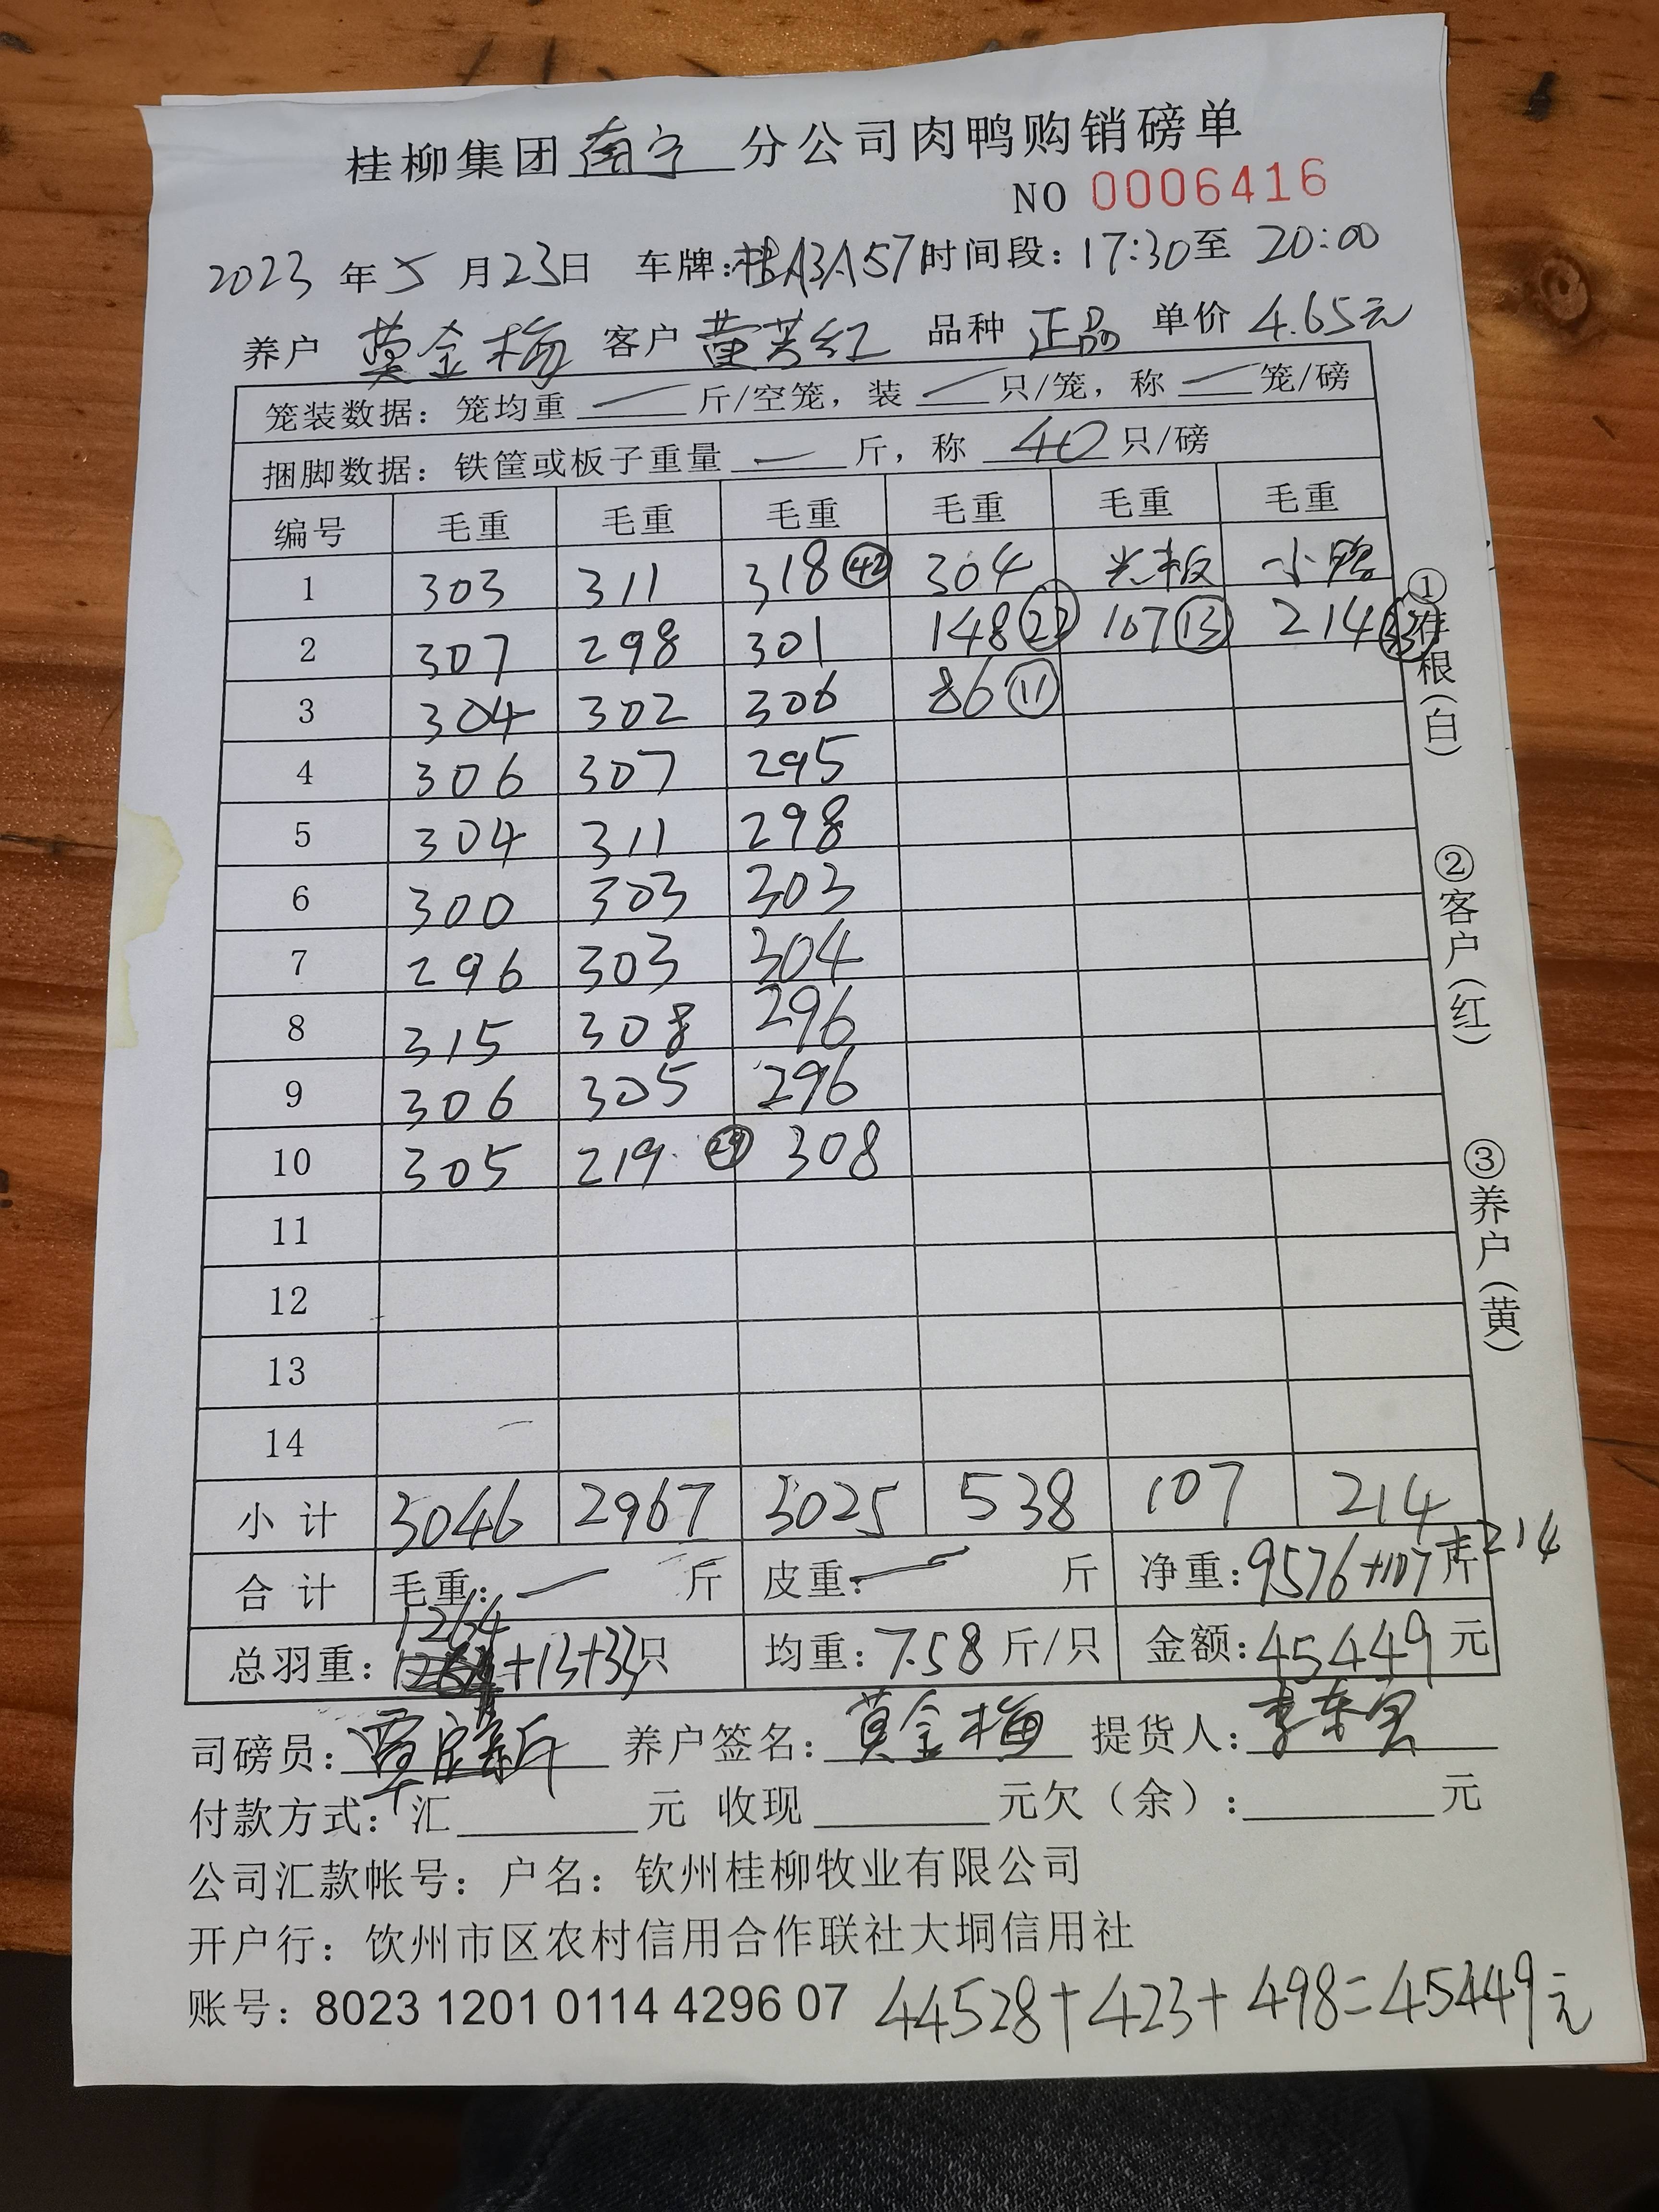 桂柳集团南宁分公司肉鸭购销磅单
NO 0006416
2023年5月23日 车牌:桂A3A571时间段:17:30至20:00
养户 莫金梅 客户 黄芳红 品种 正品 单价 4.65元
笼装数据:笼均重 — 斤/空笼,装 — 只/笼,称 — 笼/磅
捆脚数据:铁筐或板子重量 — 斤,称 40 只/磅
编号 毛重 毛重 毛重 毛重 毛重 毛重
1 303 311 318㊷ 304 光板 小鸭
2 307 298 301 148 107⑬ 214㉝
3 304 302 306 86⑪
4 306 307 295
5 304 311 298
6 300 303 303
7 296 303 304
8 315 308 296
9 306 305 296
10 305 219 ㉙ 308
11
12
13
14
小计 3046 2967 3025 538 107 214
合计 毛重:— 斤 皮重:— 斤 净重:9576+107斤 214
总羽重:1264+13+33只 均重:7.58斤/只 金额:45449元
司磅员: 养户签名:莫金梅 提货人:
付款方式:汇 元 收现 元欠(余): 元
公司汇款帐号:户名:钦州桂柳牧业有限公司
开户行:钦州市区农村信用合作联社大垌信用社
账号:8023 1201 0114 4296 07 44528+423+498=45449元
①存根(白)
②客户(红)
③养户(黄)